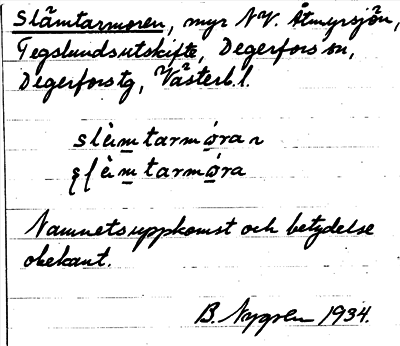 Slämtarmoren, myr NV. Åtmyrsjön,
Tegslundsutskifte, Degerfors sn,
Degerforstg, Västerb.l.
slèmtarmǿran
mtarmǿra
Namnets uppkomst och betydelse
obekant.
B. Nygren 1934.